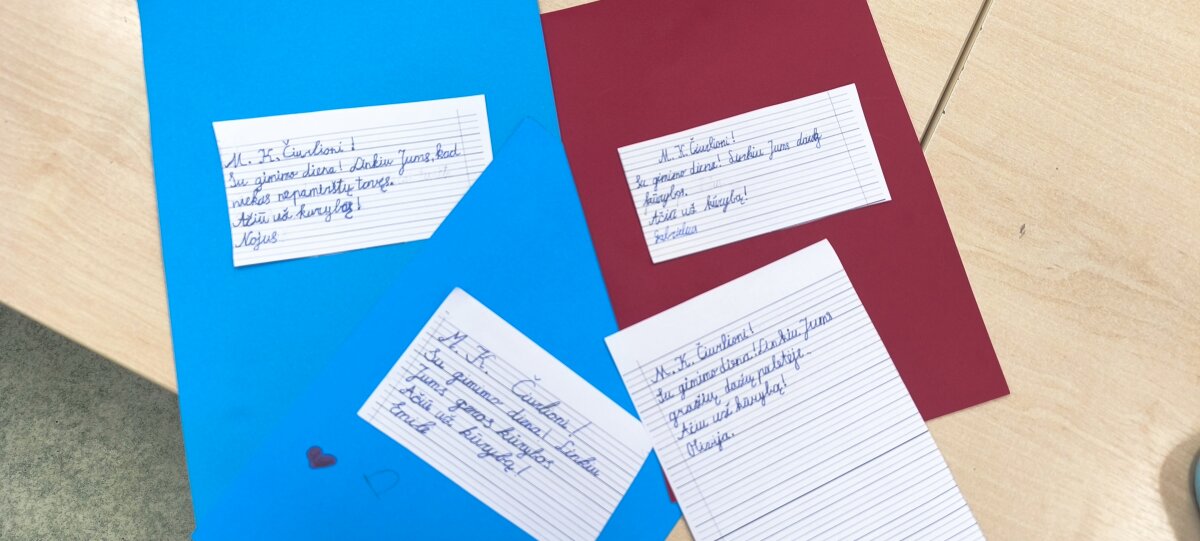 M. K. Čiurlioni!
Su gimimo diena! Linkiu Jums, kad
niekas nepamirštų tavęs.
Ačiū už kurybą!
Nojus
M. K. Čiurlioni!
Su gimimo diena! Linkiu Jums daug
kūrybos.
Ačiū už kūrybą!
Gabrielius
M. K. Čiurlioni!
Su gimimo diena! Linkiu
Jums geros kūrybos
Ačiū už kūrybą!
Emilė
M. K. Čiurlioni!
Su gimimo diena! Linkiu Jums
gražių dažų paletėje.
Ačiū už kurybą!
D